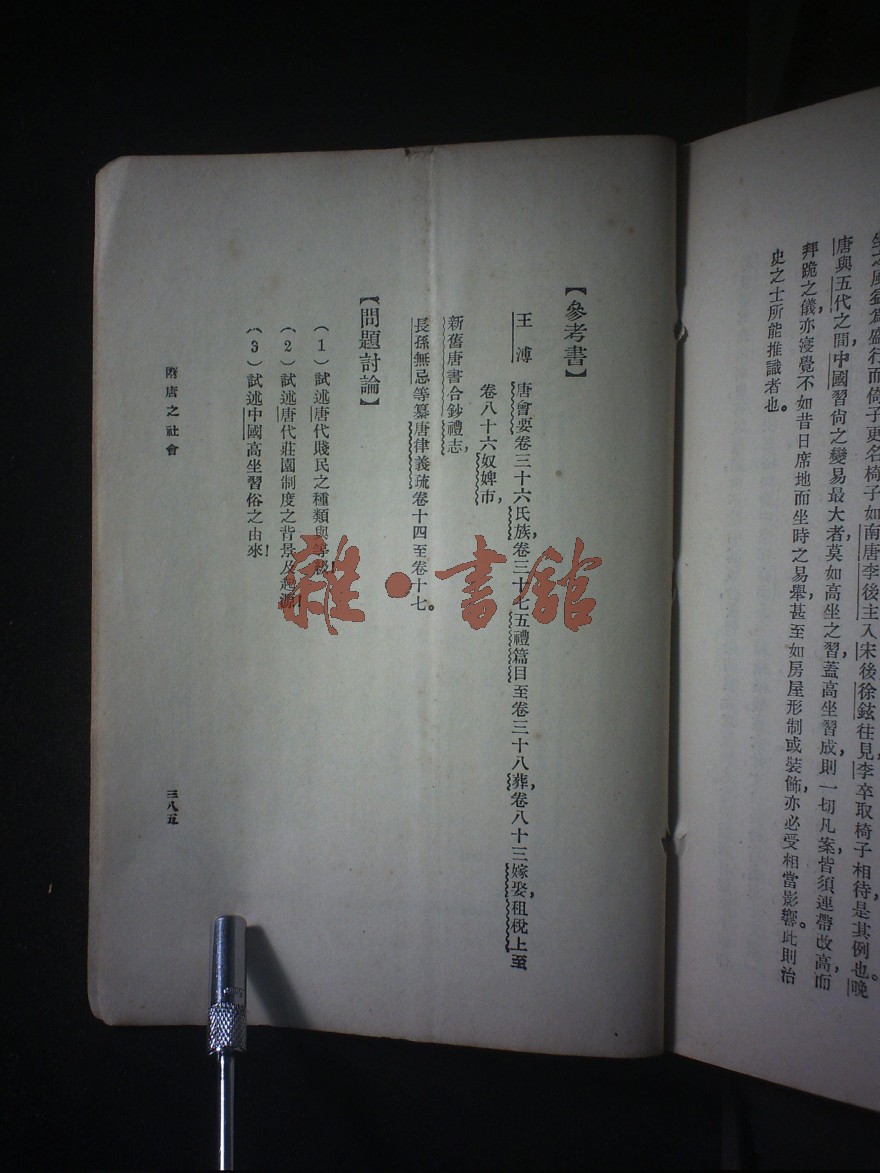 坐之風益爲盛行而倚子更名椅子如南唐李後主入宋後徐鉉往見李卒取椅子相待是其例也。晚
唐與五代之間，中國習尙之變易最大者，莫如高坐之習，蓋高坐習成，則一切凡案皆須連帶改高，而
拜跪之儀，亦寖覺不如昔日席地而坐時之易舉，甚至如房屋形制或裝飾，亦必受相當影響。此則治
史之士所能推識者也。
【參考書】
王溥 唐會要卷三十六氏族，卷三十七五禮篇目至卷三十八葬，卷八十三嫁娶，租稅上至
卷八十六奴婢，市，
新舊唐書合鈔禮志，
長孫無忌等纂唐律義疏卷十四至卷十七。
【問題討論】
（1）試述唐代賤民之種類與等級！
（2）試述唐代莊園制度之背景及起源！
（3）試述中國高坐習俗之由來！
隋唐之社會
三八五
雜·書館